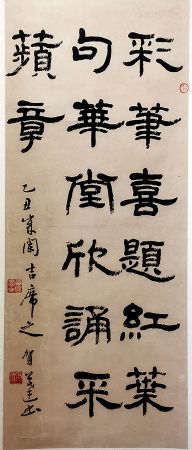 彩筆喜題紅葉
句華堂欣誦采
蘋章
乙丑歲闌吉席之賀